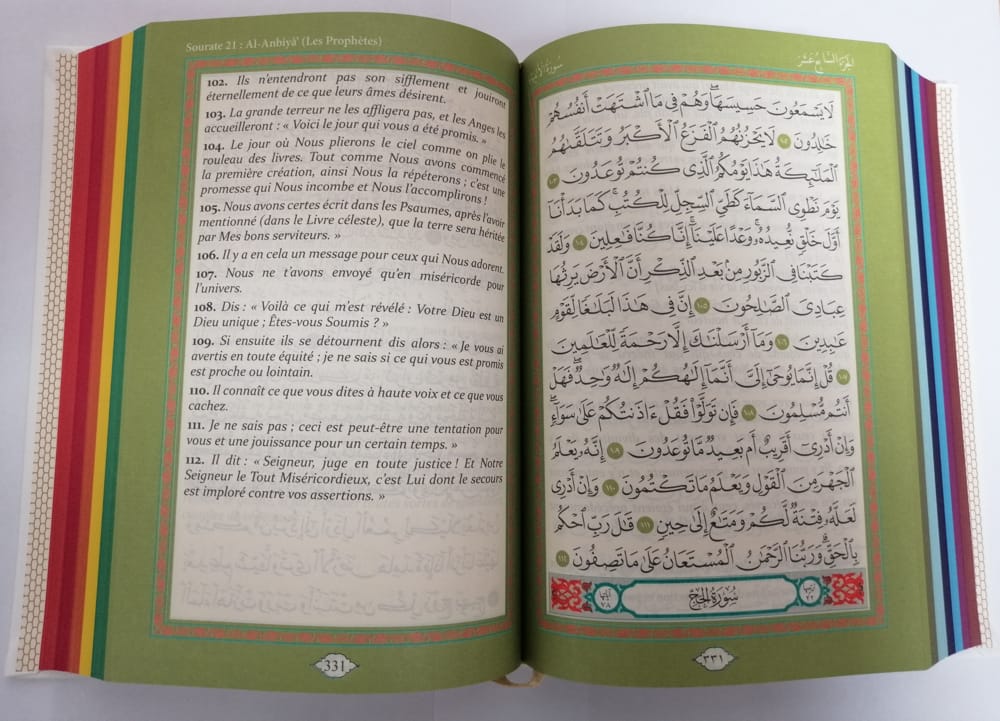 Sourate 21 : Al-Anbiyâ' (Les Prophètes)
102. Ils n'entendront pas son sifflement et jouiront
éternellement de ce que leurs âmes désirent.
103. La grande terreur ne les affligera pas, et les Anges les
accueilleront : « Voici le jour qui vous a été promis. »
104. Le jour où Nous plierons le ciel comme on plie le
rouleau des livres. Tout comme Nous avons commencé
la première création, ainsi Nous la répéterons ; c'est une
promesse qui Nous incombe et Nous l'accomplirons !
105. Nous avons certes écrit dans les Psaumes, après l'avoir
mentionné (dans le Livre céleste), que la terre sera héritée
par Mes bons serviteurs. »
106. Il y a en cela un message pour ceux qui Nous adorent.
107. Nous ne t'avons envoyé qu'en miséricorde pour
l'univers.
108. Dis : « Voilà ce qui m'est révélé : Votre Dieu est un
Dieu unique ; Êtes-vous Soumis ? »
109. Si ensuite ils se détournent dis alors : « Je vous ai
avertis en toute équité ; je ne sais si ce qui vous est promis
est proche ou lointain.
110. Il connaît ce que vous dites à haute voix et ce que vous
cachez.
111. Je ne sais pas ; ceci est peut-être une tentation pour
vous et une jouissance pour un certain temps. »
112. Il dit : « Seigneur, juge en toute justice ! Et Notre
Seigneur le Tout Miséricordieux, c'est Lui dont le secours
est imploré contre vos assertions. »
331
الجزء السابع عشر
سورة الأنبياء
لَا يَسْمَعُونَ حَسِيسَهَا ۖ وَهُمْ فِي مَا ٱشْتَهَتْ أَنفُسُهُمْ
خَٰلِدُونَ ١٠٢ لَا يَحْزُنُهُمُ ٱلْفَزَعُ ٱلْأَكْبَرُ وَتَتَلَقَّىٰهُمُ
ٱلْمَلَٰٓئِكَةُ هَٰذَا يَوْمُكُمُ ٱلَّذِي كُنتُمْ تُوعَدُونَ ١٠٣
يَوْمَ نَطْوِي ٱلسَّمَآءَ كَطَيِّ ٱلسِّجِلِّ لِلْكُتُبِ ۚ كَمَا بَدَأْنَآ
أَوَّلَ خَلْقٍ نُّعِيدُهُۥ ۚ وَعْدًا عَلَيْنَآ ۚ إِنَّا كُنَّا فَٰعِلِينَ ١٠٤ وَلَقَدْ
كَتَبْنَا فِي ٱلزَّبُورِ مِنۢ بَعْدِ ٱلذِّكْرِ أَنَّ ٱلْأَرْضَ يَرِثُهَا
عِبَادِيَ ٱلصَّٰلِحُونَ ١٠٥ إِنَّ فِي هَٰذَا لَبَلَٰغًا لِّقَوْمٍ
عَٰبِدِينَ ١٠٦ وَمَآ أَرْسَلْنَٰكَ إِلَّا رَحْمَةً لِّلْعَٰلَمِينَ
١٠٧ قُلْ إِنَّمَا يُوحَىٰٓ إِلَيَّ أَنَّمَآ إِلَٰهُكُمْ إِلَٰهٌ وَٰحِدٌ ۖ فَهَلْ
أَنتُم مُّسْلِمُونَ ١٠٨ فَإِن تَوَلَّوْا۟ فَقُلْ ءَاذَنتُكُمْ عَلَىٰ سَوَآءٍ ۖ
وَإِنْ أَدْرِيٓ أَقَرِيبٌ أَم بَعِيدٌ مَّا تُوعَدُونَ ١٠٩ إِنَّهُۥ يَعْلَمُ
ٱلْجَهْرَ مِنَ ٱلْقَوْلِ وَيَعْلَمُ مَا تَكْتُمُونَ ١١٠ وَإِنْ أَدْرِي
لَعَلَّهُۥ فِتْنَةٌ لَّكُمْ وَمَتَٰعٌ إِلَىٰ حِينٍ ١١١ قَٰلَ رَبِّ ٱحْكُم
بِٱلْحَقِّ ۗ وَرَبُّنَا ٱلرَّحْمَٰنُ ٱلْمُسْتَعَانُ عَلَىٰ مَا تَصِفُونَ ١١٢
ترتيبها ٢٢ سُورَةُ الحَجِّ آياتها ٧٨
٣٣١